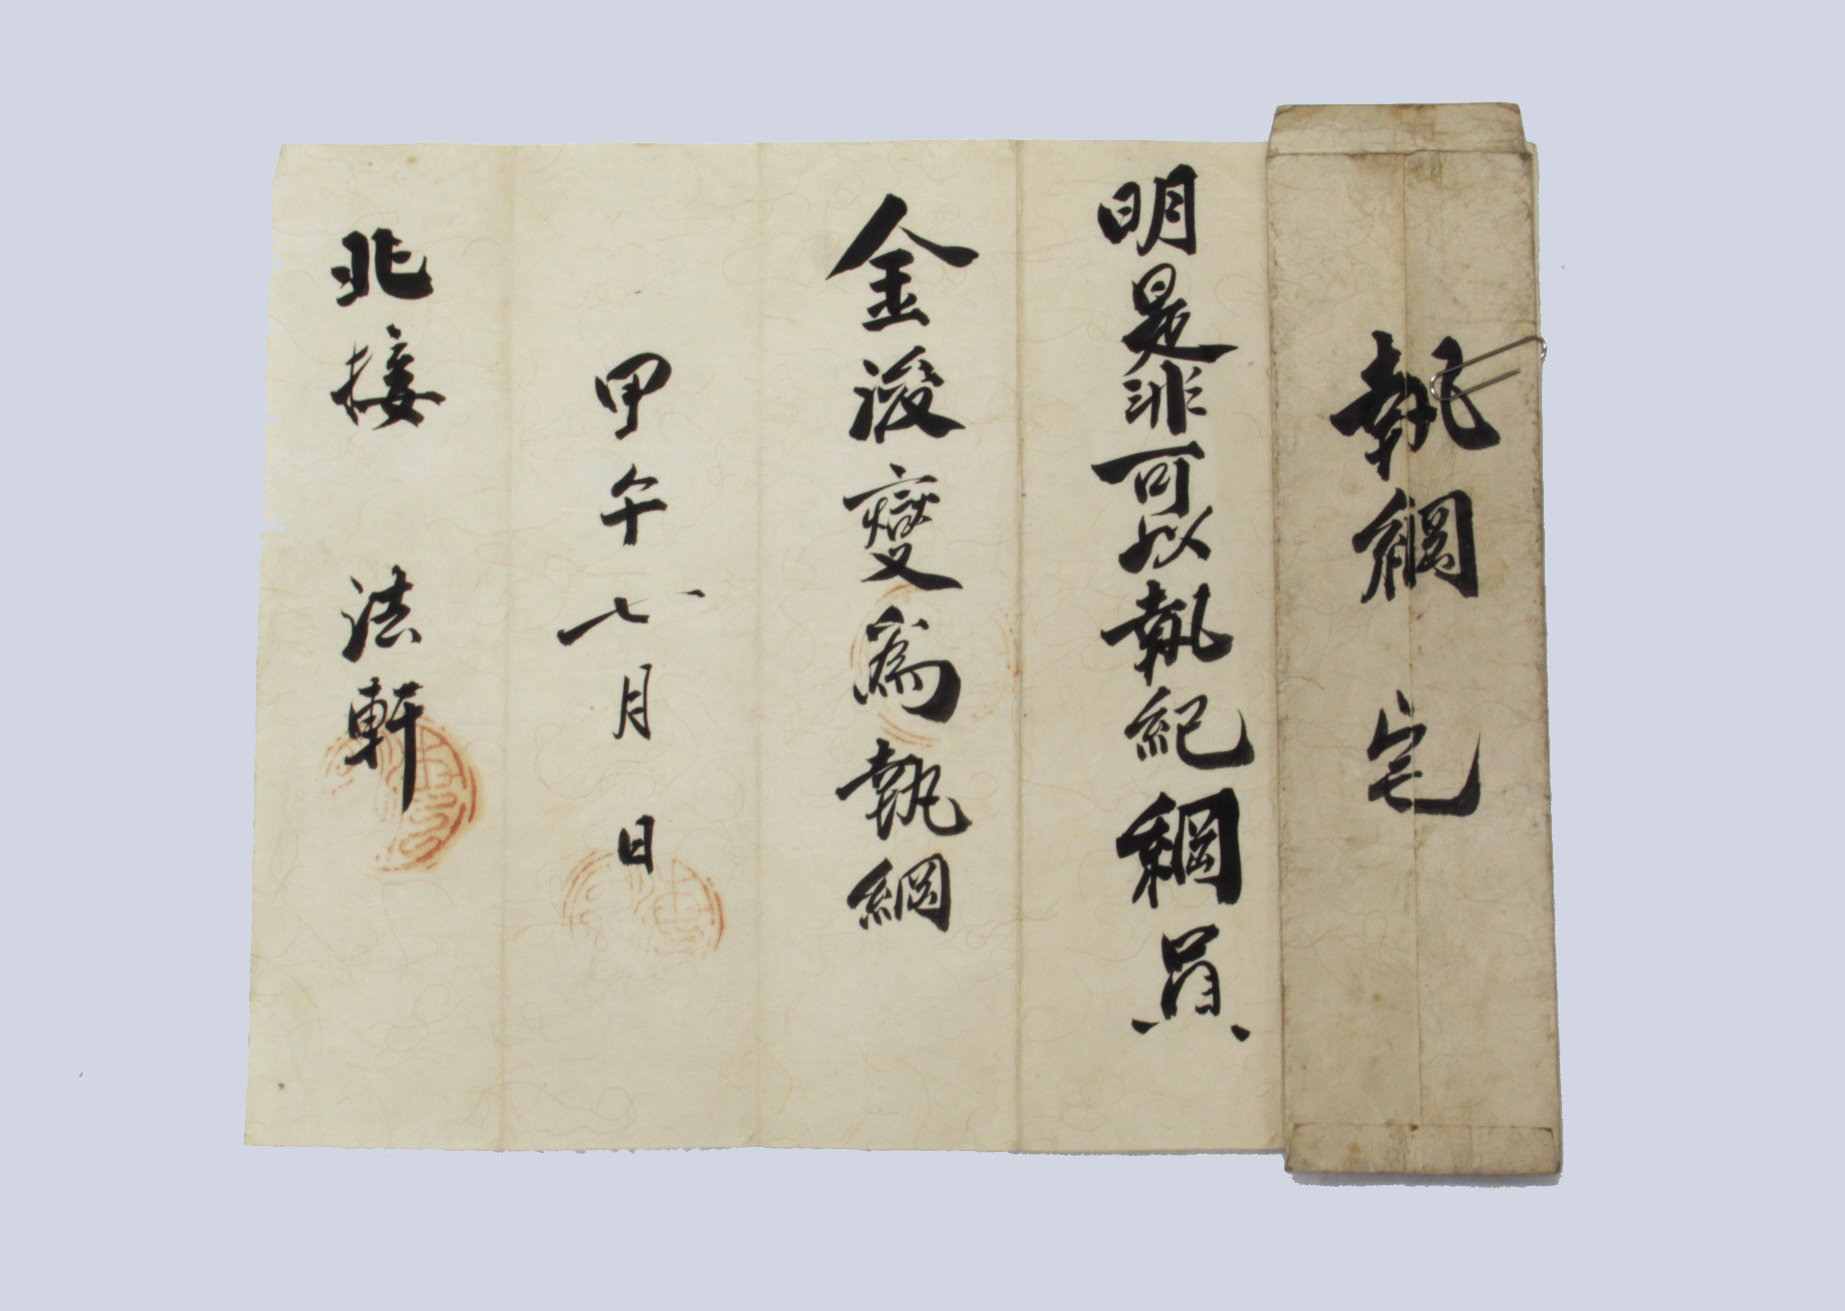 執綱 宅
明是非可以執紀綱員
金浚變爲執綱
甲午七月 日
北接 法軒